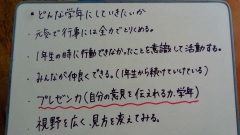 ・どんな学年にしていきたいか
元気で行事には全力でとりくめる。
1年生の時に行動できなかったことを意識して活動する。
みんなが仲良くできる。(1年生から続けていけている)
プレゼン力(自分の意見を伝えれる力。学年)
視野を広く、見方を変えてみる。